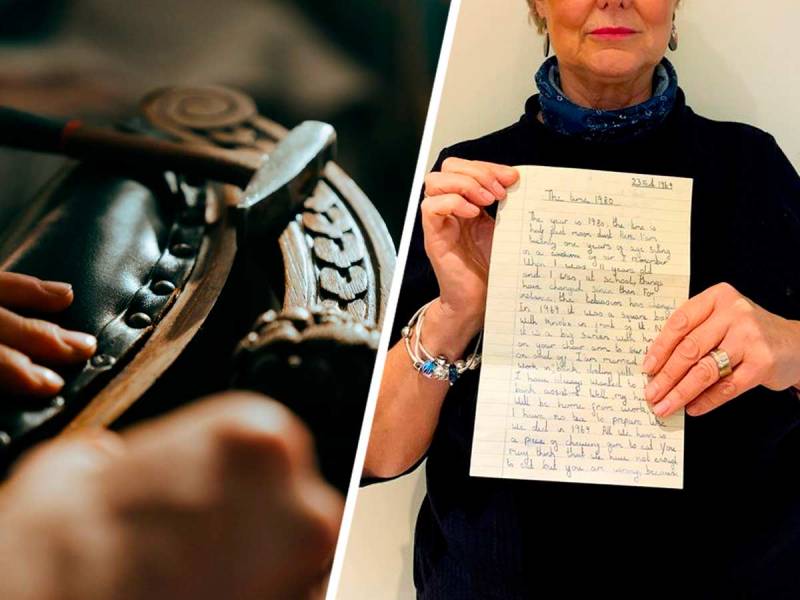 1969
The time 1980.
The year is 1980, the time is
half past moon dust time. I am
twenty one years of age sitting
of air. I remember
when I was 11 years old
and I was at school, things
have changed since then. For
instance the television has changed
In 1969 it was a square box
with knobs in front of it. N
it is a big screen with
on your chair arm to
on and of. I am married
work in bank dealing with
I have always wanted to
bank Well my hu
will be home from work
I have no tea to prepare like
we did in 1969. All we have is
a piece of chewing gum to eat You
may think that we have not enough
to eat but you are wrong, because